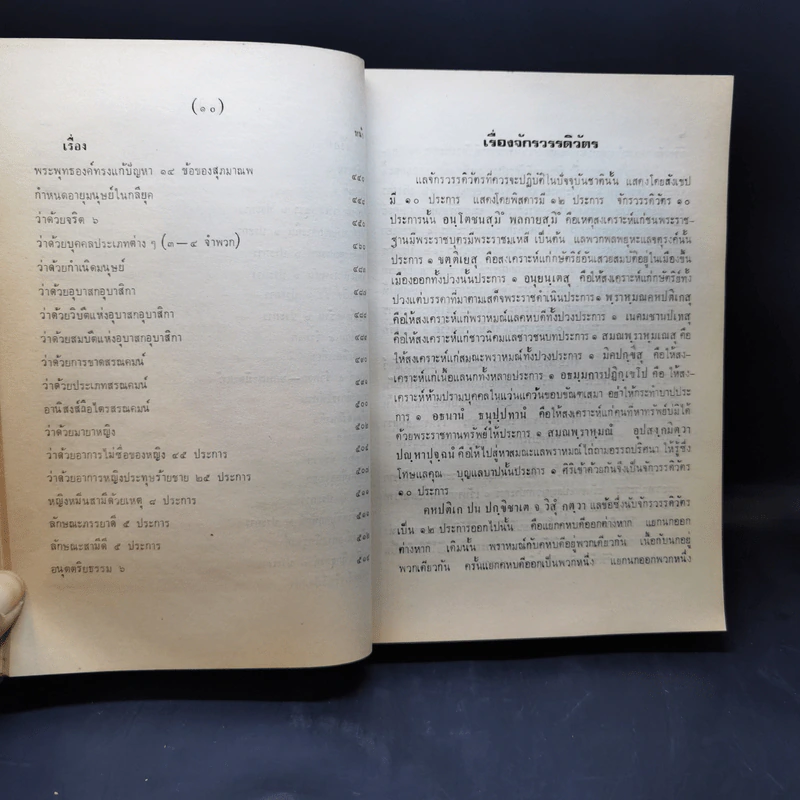 (๑๐)
เรื่อง
หน้า
พระพุทธองค์ทรงแก้ปัญหา ๑๔ ข้อของสุภมาณพ
กำหนดอายุมนุษย์ในกลียุค
ว่าด้วยจริต ๖
ว่าด้วยบุคคลประเภทต่าง ๆ (๓—๔ จำพวก)
ว่าด้วยกำเนิดมนุษย์
ว่าด้วยอุบาสกอุบาสิกา
ว่าด้วยวิบัติแห่งอุบาสกอุบาสิกา
ว่าด้วยสมบัติแห่งอุบาสกอุบาสิกา
ว่าด้วยการขาดสรณคมน์
ว่าด้วยประเภทสรณคมน์
อานิสงส์ถือไตรสรณคมน์
ว่าด้วยมายาหญิง
ว่าด้วยอาการไม่ซื่อของหญิง ๔๕ ประการ
ว่าด้วยอาการหญิงประทุษร้ายชาย ๒๕ ประการ
หญิงหมิ่นสามีด้วยเหตุ ๘ ประการ
ลักษณะภรรยาดี ๕ ประการ
ลักษณะสามีดี ๕ ประการ
อนุตตริยธรรม ๖
เรื่องจักรวรรดิวัตร
แลจักรวรรดิวัตรที่ควรจะปฏิบัติในปัจจุบันชาตินั้น แสดงโดยสังเขป
มี ๑๐ ประการ แสดงโดยพิสดารมี ๑๒ ประการ จักรวรรดิวัตร ๑๐
ประการนั้น อนฺโตชนสฺมึ พลกายสฺมึ คือเหตุสงเคราะห์แก่ชนพระราช-
ฐานมีพระราชบุตรมีพระราชมเหสี เป็นต้น แลพวกพลพยุหะแลจตุรงค์นั้น
ประการ ๑ ขตฺติเยสุ คือสงเคราะห์แก่กษัตริย์อันเสวยสมบัติอยู่ในเมืองขึ้น
เมืองออกทั้งปวงนั้นประการ ๑ อนุยนฺเตสุ คือให้สงเคราะห์แก่กษัตริย์ทั้ง
ปวงแต่บรรดาที่มาตามเสด็จพระราชดำเนินประการ ๑ พฺราหฺมณคหปติเกสุ
คือให้สงเคราะห์แก่พราหมณ์แลคหบดีทั้งปวงประการ ๑ เนคมชานปเทสุ
คือให้สงเคราะห์แก่ชาวนิคมแลชาวชนบทประการ ๑ สมณพฺราหฺมเณสุ คือ
ให้สงเคราะห์แก่สมณะพราหมณ์ทั้งปวงประการ ๑ มิคปกฺขีสุ คือให้สง-
เคราะห์แก่เนื้อแลนกทั้งหลายประการ ๑ อธมฺมการปฏิกฺเขโป คือ ให้สง-
เคราะห์ห้ามปรามบุคคลในแว่นแคว้นขอบขัณฑเสมา อย่าให้กระทำบาปประ-
การ ๑ อธนานํ ธนุปฺปทานํ คือให้สงเคราะห์แก่คนที่หาทรัพย์บ่มิได้
ด้วยพระราชทานทรัพย์ให้ประการ ๑ สมณพฺราหฺมณํ อุปสงฺกมิตฺวา
ปญฺหาปุจฺฉนํ คือให้ไปสู่หาสมณะแลพราหมณ์ไต่ถามอรรถปริศนา ให้รู้ซึ่ง
โทษแลคุณ บุญแลบาปนั้นประการ ๑ ศิริเข้าด้วยกันจึงเป็นจักรวรรดิวัตร
๑๐ ประการ
คหปติเก ปน ปกฺขิชาเต จ วิสุํ กตฺวา แลข้อซึ่งนับจักรวรรดิวัตร
เป็น ๑๒ ประการออกไปนั้น คือแยกคหบดีออกต่างหาก แยกนกออก
ต่างหาก เดิมนั้น พราหมณ์กับคหบดีอยู่พวกเดียวกัน เนื้อกับนกอยู่
พวกเดียวกัน ครั้นแยกคหบดีออกเป็นพวกหนึ่ง แยกนกออกพวกหนึ่ง